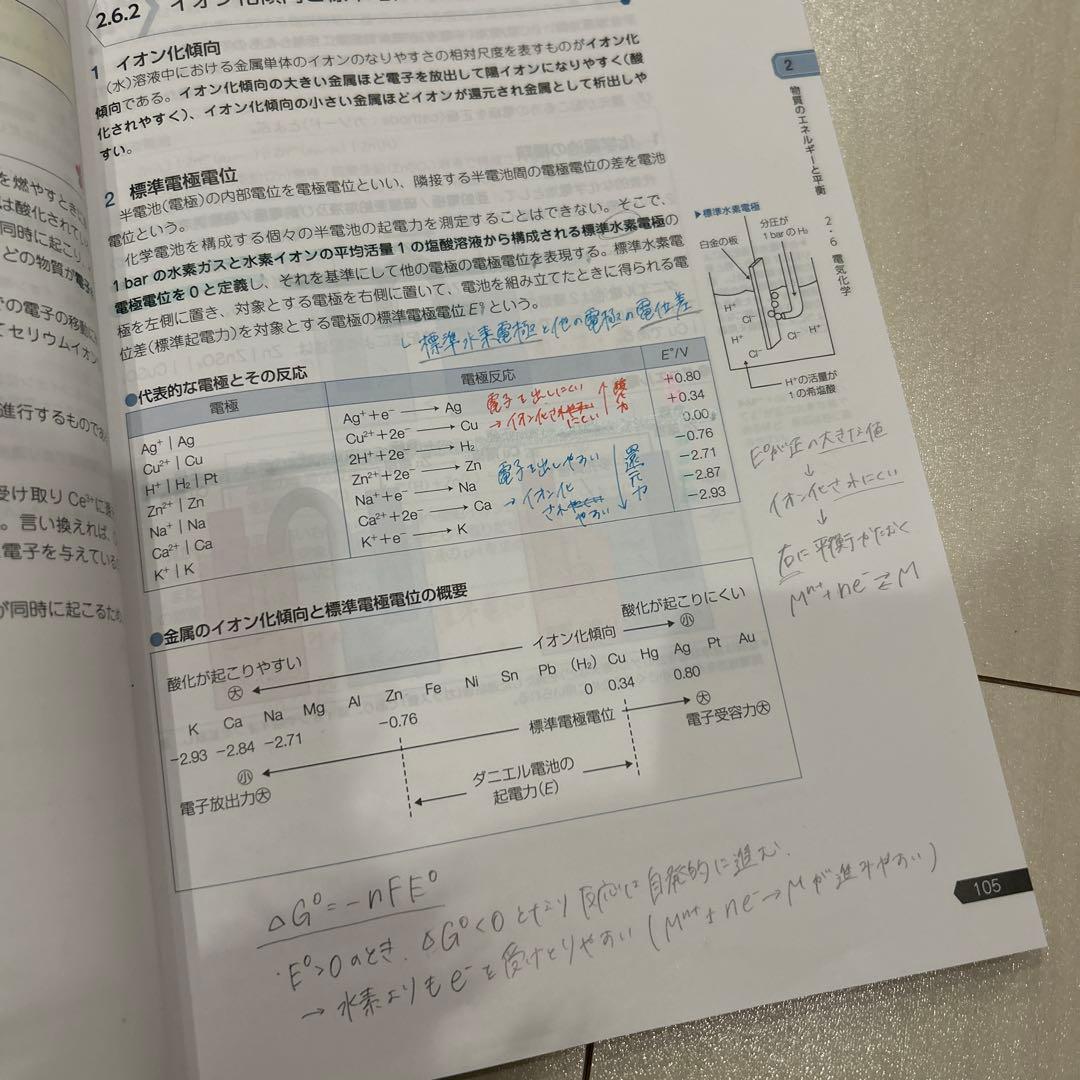 2.6.2
1 イオン化傾向
(水)溶液中における金属単体のイオンのなりやすさの相対尺度を表すものがイオン化
傾向である。イオン化傾向の大きい金属ほど電子を放出して陽イオンになりやすく(酸
化されやすく)、イオン化傾向の小さい金属ほどイオンが還元され金属として析出しや
すい。
2 標準電極電位
半電池(電極)の内部電位を電極電位といい、隣接する半電池間の電極電位の差を電池
電位という。
化学電池を構成する個々の半電池の起電力を測定することはできない。そこで、
1 barの水素ガスと水素イオンの平均活量1の塩酸溶液から構成される標準水素電極の
電極電位を0と定義し、それを基準にして他の電極の電極電位を表現する。標準水素電
極を左側に置き、対象とする電極を右側に置いて、電池を組み立てたときに得られる電
位差(標準起電力)を対象とする電極の標準電極電位E°という。
標準水素電極と他の電極の電位差
●代表的な電極とその反応
電極 電極反応 E°/V
Ag⁺ | Ag Ag⁺+e⁻ → Ag +0.80
Cu²⁺ | Cu Cu²⁺+2e⁻ → Cu +0.34
H⁺ | H₂ | Pt 2H⁺+2e⁻ → H₂ 0.00
Zn²⁺ | Zn Zn²⁺+2e⁻ → Zn −0.76
Na⁺ | Na Na⁺+e⁻ → Na −2.71
Ca²⁺ | Ca Ca²⁺+2e⁻ → Ca −2.87
K⁺ | K K⁺+e⁻ → K −2.93
電子を出しにくい
→イオン化されにくい
酸化力
電子を出しやすい
→イオン化
されやすい
還元力
●金属のイオン化傾向と標準電極電位の概要
酸化が起こりやすい イオン化傾向 酸化が起こりにくい
大 小
K Ca Na Mg Al Zn Fe Ni Sn Pb (H₂) Cu Hg Ag Pt Au
−2.93 −2.84 −2.71 −0.76 0 0.34 0.80
小 標準電極電位 大
電子放出力大 電子受容力大
ダニエル電池の
起電力(E)
ΔG°=−nFE°
・E°>0のとき、ΔG°<0となり反応は自発的に進む.
→ 水素よりもe⁻を受けとりやすい(Mⁿ⁺+ne⁻→Mが進みやすい)
2
物質のエネルギーと平衡
2・6 電気化学
▶標準水素電極
分圧が
1 barのH₂
白金の板
H⁺
H⁺
H⁺
Cl⁻
Cl⁻
Cl⁻
H⁺
H⁺の活量が
1の希塩酸
E°が正の大きな値
↓
イオン化されにくい
↓
右に平衡がかたむく
Mⁿ⁺+ne⁻⇄M
105
を燃やすとき
は酸化されて
同時に起こり、
どの物質が電子
での電子の移動
てセリウムイオン
進行するもので
受け取りCe³⁺に
。言い換えれば、
電子を与えている
が同時に起こるため